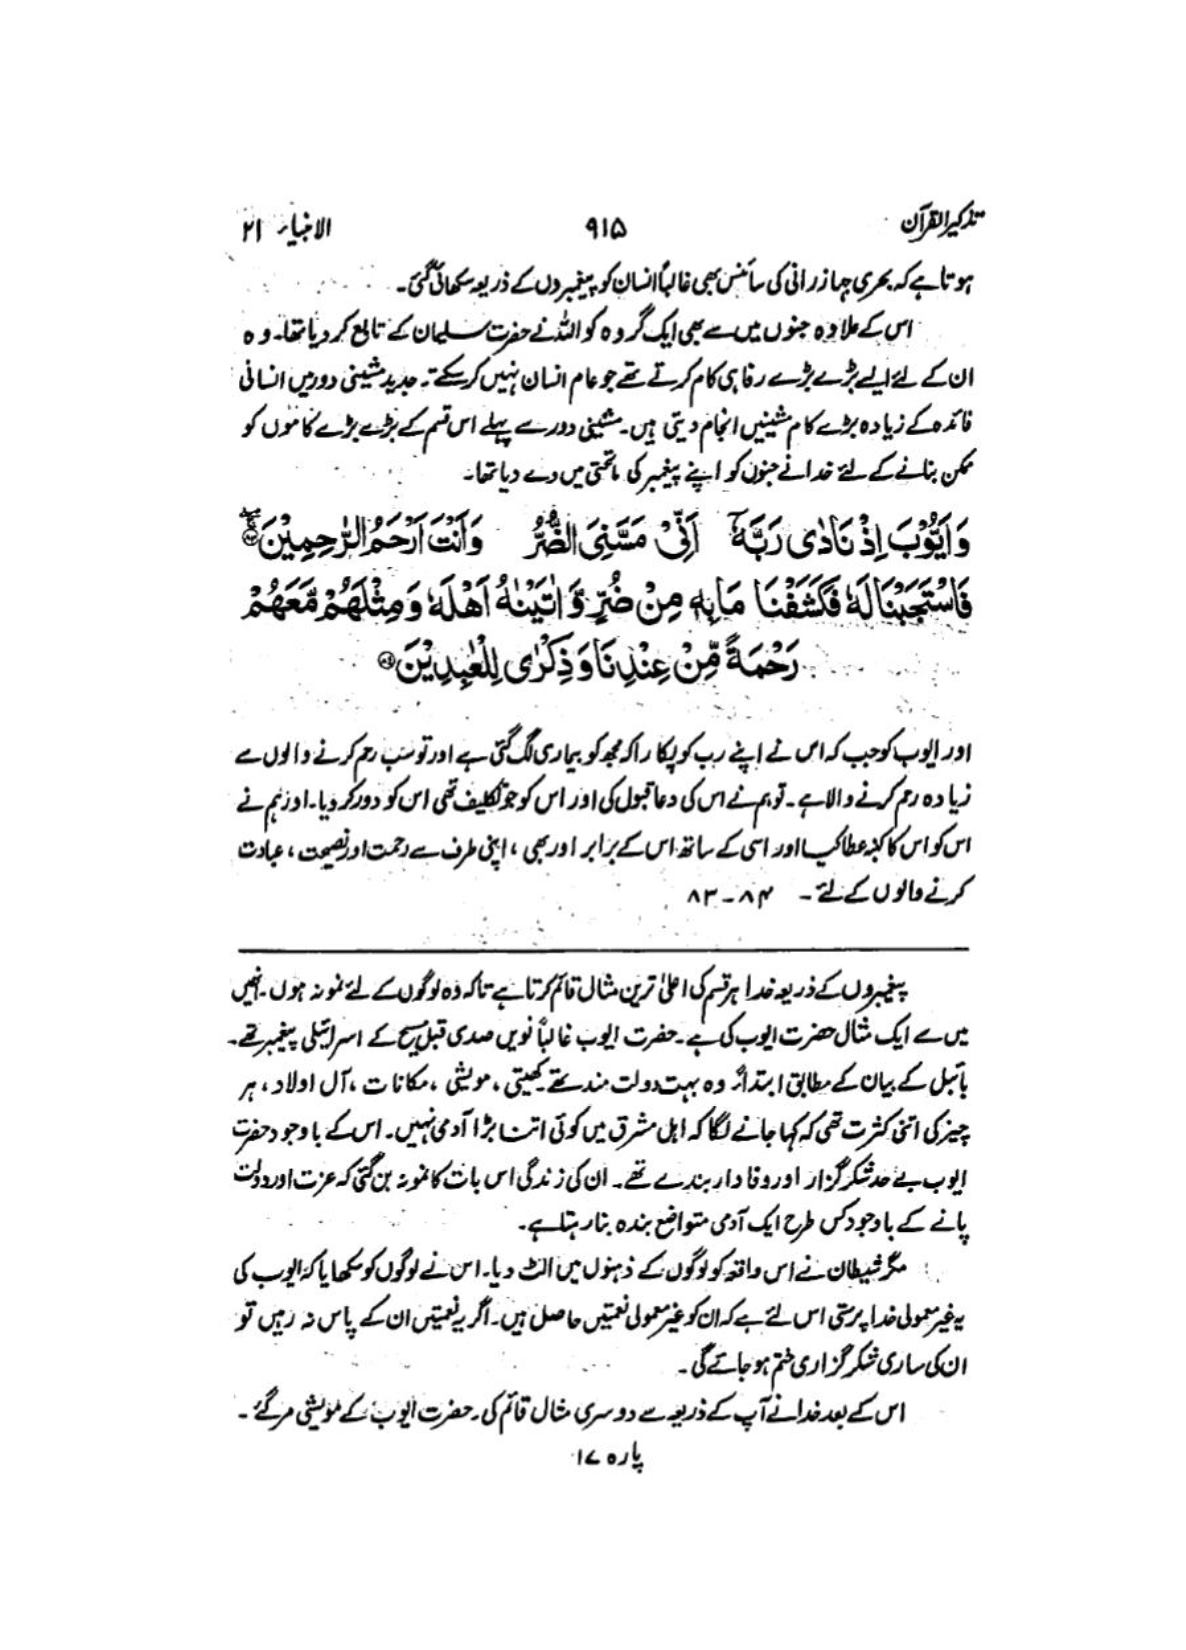 تذکیر القرآن ۹۱۵ الانبیاء ۲۱
ہوتا ہے کہ بحری جہاز رانی کی سائنس بھی غالباً انسان کو پیغمبروں کے ذریعہ سکھائی گئی۔
اس کے علاوہ جنوں میں سے بھی ایک گروہ کو اللہ نے حضرت سلیمان کے تابع کر دیا تھا۔ وہ
ان کے لئے ایسے بڑے بڑے رفاہی کام کرتے تھے جو عام انسان نہیں کر سکتے۔ جدید مشینی دور میں انسانی
فائدہ کے زیادہ بڑے کام مشینیں انجام دیتی ہیں۔ مشینی دور سے پہلے اس قسم کے بڑے بڑے کاموں کو
ممکن بنانے کے لئے خدا نے جنوں کو اپنے پیغمبر کی ماتحتی میں دے دیا تھا۔
وَاَيُّوْبَ اِذْ نَادٰى رَبَّهٗٓ اَنِّىْ مَسَّنِىَ الضُّرُّ وَاَنْتَ اَرْحَمُ الرّٰحِمِيْنَ ۸۳
فَاسْتَجَبْنَا لَهٗ فَكَشَفْنَا مَا بِهٖ مِنْ ضُرٍّ وَّاٰتَيْنٰهُ اَهْلَهٗ وَمِثْلَهُمْ مَّعَهُمْ
رَحْمَةً مِّنْ عِنْدِنَا وَذِكْرٰى لِلْعٰبِدِيْنَ ۸۴
اور ایوب کو جب کہ اس نے اپنے رب کو پکارا کہ مجھ کو بیماری لگ گئی ہے اور تو سب رحم کرنے والوں سے
زیادہ رحم کرنے والا ہے۔ تو ہم نے اس کی دعا قبول کی اور اس کو جو تکلیف تھی اس کو دور کر دیا۔ اور ہم نے
اس کو اس کا کنبہ عطا کیا اور اسی کے ساتھ اس کے برابر اور بھی، اپنی طرف سے رحمت اور نصیحت، عبادت
کرنے والوں کے لئے۔ ۸۴ ۔ ۸۳
پیغمبروں کے ذریعہ خدا ہر قسم کی اعلیٰ ترین مثال قائم کرتا ہے تاکہ وہ لوگوں کے لئے نمونہ ہوں۔ انہیں
میں سے ایک مثال حضرت ایوب کی ہے۔ حضرت ایوب غالباً نویں صدی قبل مسیح کے اسرائیلی پیغمبر تھے۔
بائبل کے بیان کے مطابق ابتداءً وہ بہت دولت مند تھے کھیتی، مویشی، مکانات، آل اولاد، ہر
چیز کی اتنی کثرت تھی کہ کہا جانے لگا کہ اہل مشرق میں کوئی اتنا بڑا آدمی نہیں۔ اس کے باوجود حضرت
ایوب بے حد شکر گزار اور وفادار بندے تھے۔ ان کی زندگی اس بات کا نمونہ بن گئی کہ عزت اور دولت
پانے کے باوجود کس طرح ایک آدمی متواضع بندہ بنا رہتا ہے۔
مگر شیطان نے اس واقعہ کو لوگوں کے ذہنوں میں الٹ دیا۔ اس نے لوگوں کو سکھایا کہ ایوب کی
یہ غیر معمولی خدا پرستی اس لئے ہے کہ ان کو غیر معمولی نعمتیں حاصل ہیں۔ اگر یہ نعمتیں ان کے پاس نہ رہیں تو
ان کی ساری شکر گزاری ختم ہو جائے گی۔
اس کے بعد خدا نے آپ کے ذریعہ سے دوسری مثال قائم کی۔ حضرت ایوب کے مویشی مر گئے۔
پارہ ۱۷